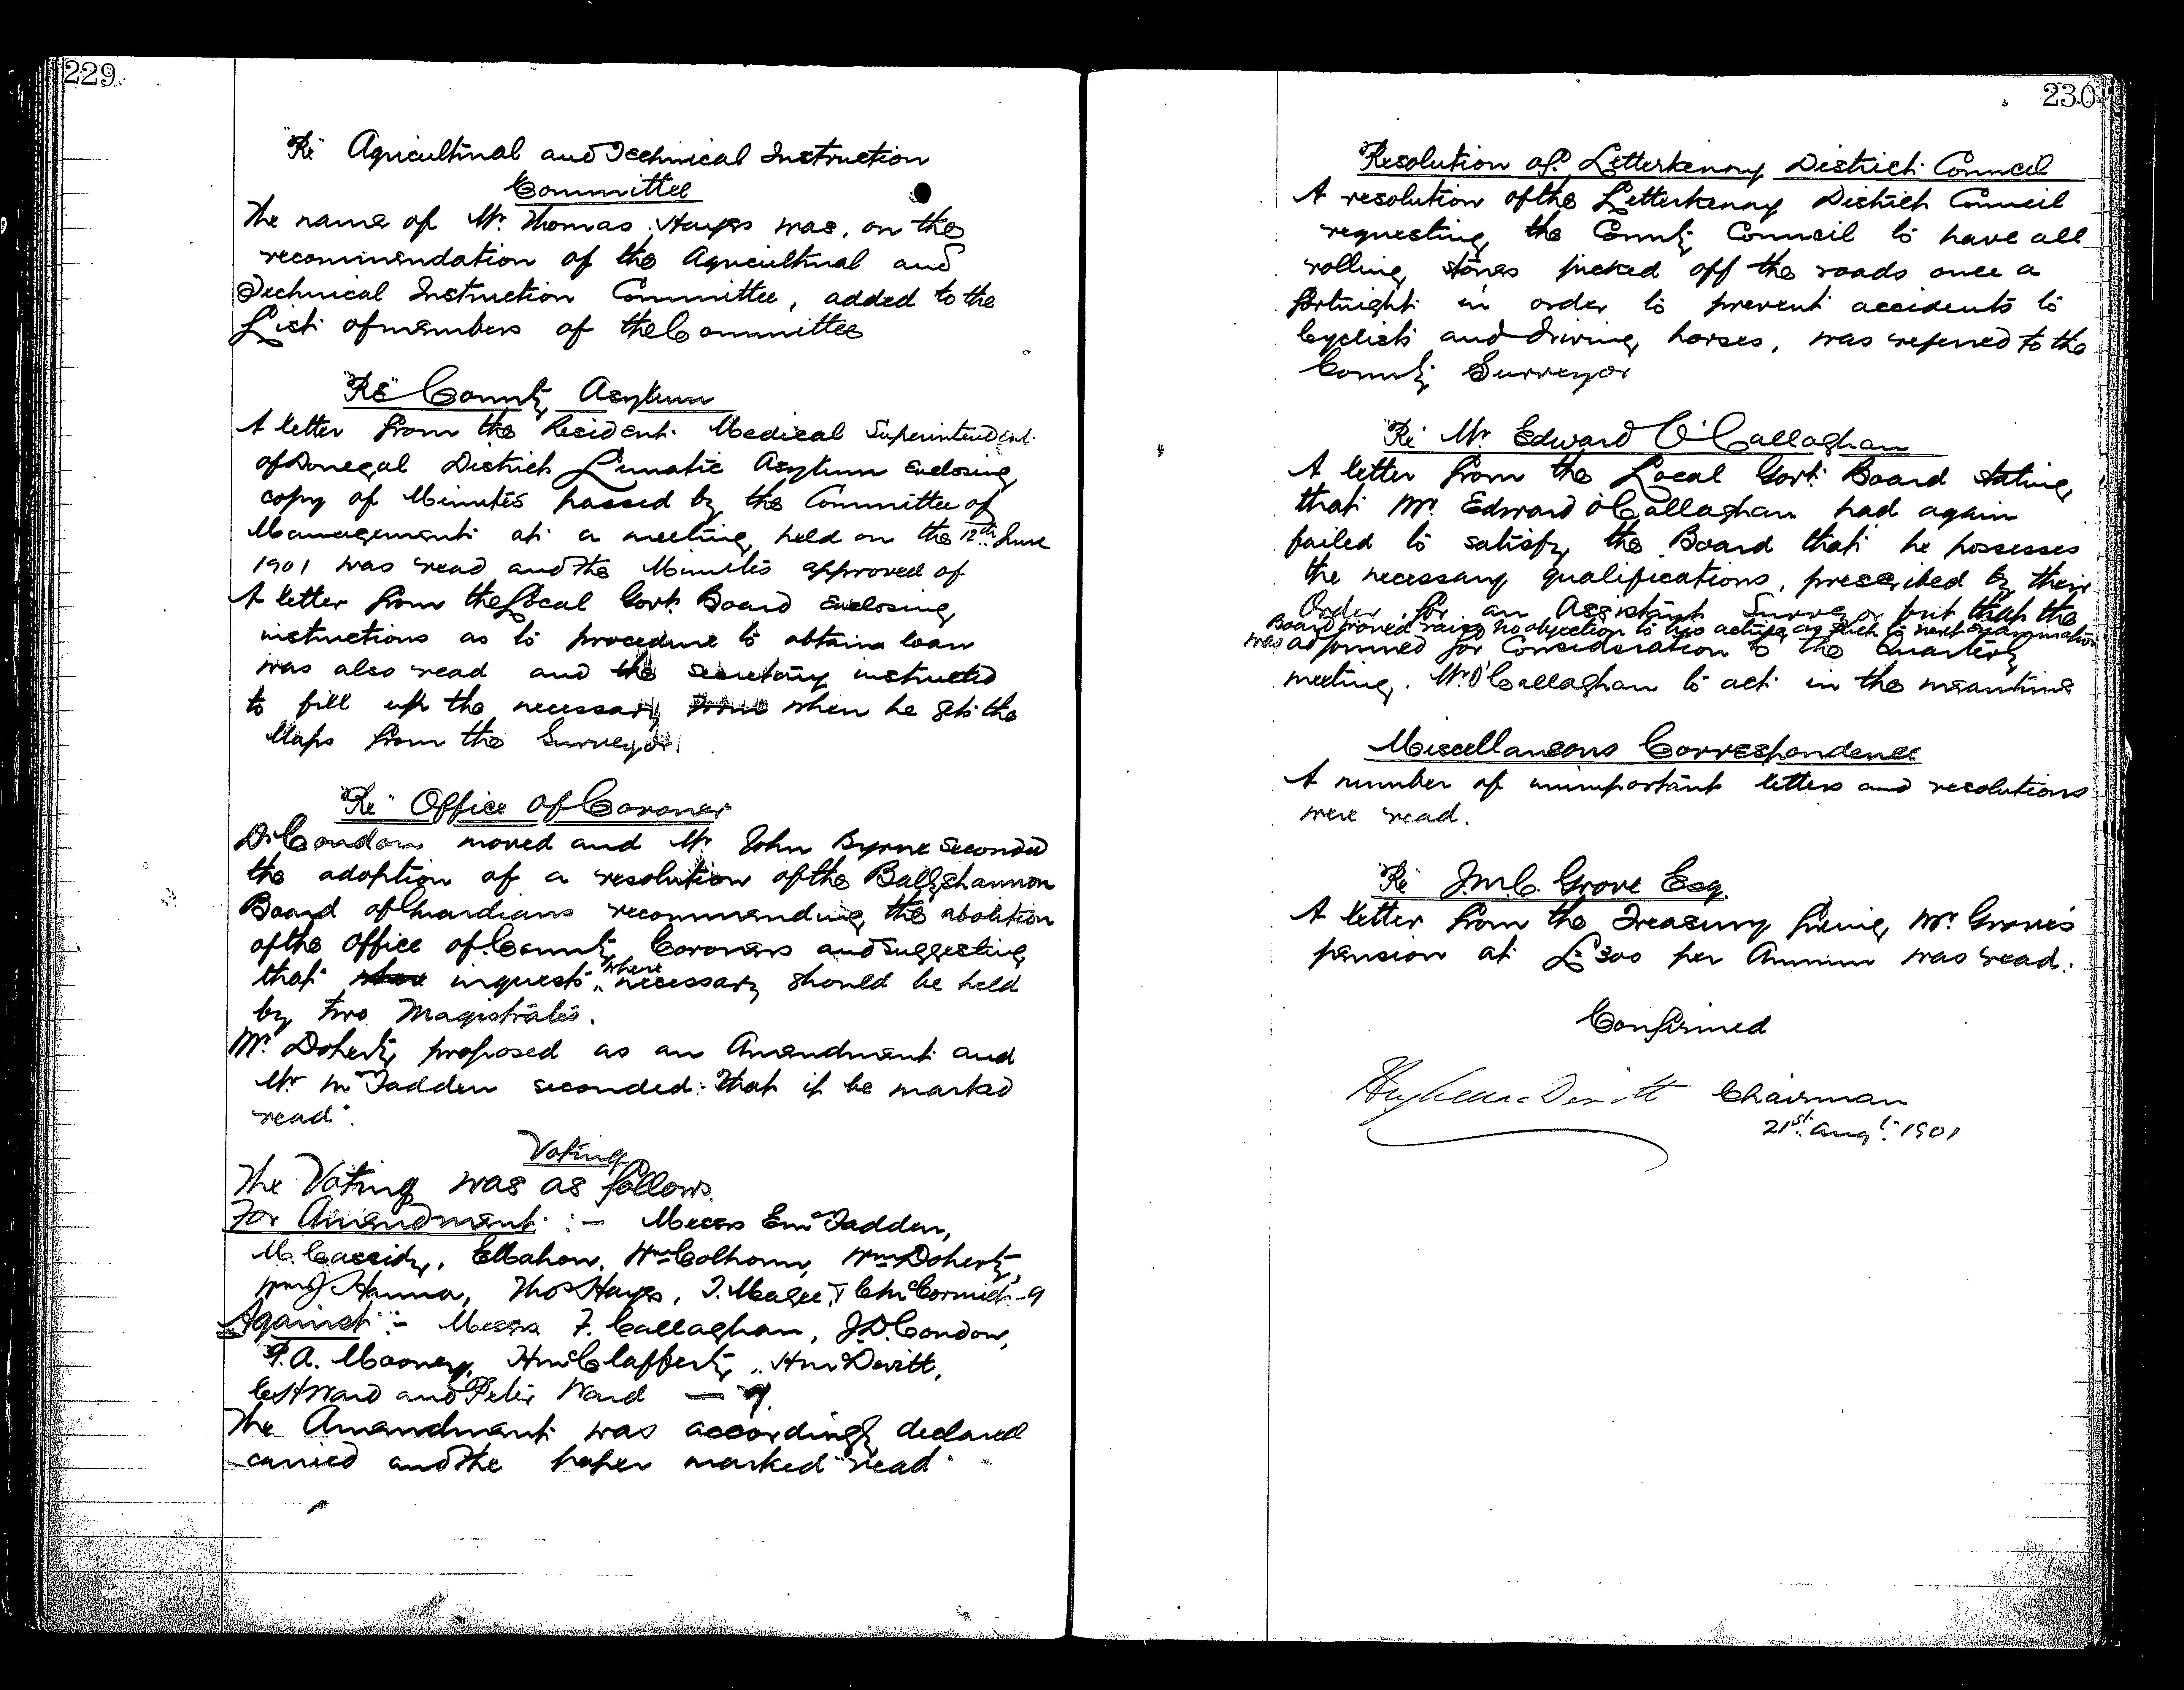 229
"Re" Agricultural and Technical Instruction
Committee
The name of Mr. Thomas Hayes was, on the
recommendation of the Agricultural and
Technical Instruction Committee, added to the
List of members of the Committee
"Re" County Asylum
A letter from the Resident Medical Superintendent
of Donegal District Lunatic Asylum enclosing
copy of Minutes passed by the Committee of
Management at a meeting held on the 12th June
1901 was read and the Minutes approved of
A letter from the Local Govt. Board enclosing
instructions as to procedure to obtain loan
was also read and the secretary instructed
to fill up the necessary when he gets the
Maps from the Surveyor.
"Re" Office of Coroner
Dr Condon moved and Mr John Byrne seconded
the adoption of a resolution of the Ballyshannon
Board of Guardians recommending the abolition
of the Office of County Coroners and suggesting
that inquests where necessary should be held
by two Magistrates.
Mr. Doherty proposed as an Amendment and
Mr McFadden seconded: that it be marked
"read".
Voting
The Voting was as follows.
For Amendment :- Messrs E McFadden,
M. Cassidy, E Mahon, Wm Colhoun, Wm Doherty,
Wm J Hanna, Thos Hayes, T. Magee, & C McCormick - 9
Against :- Messrs F. Callaghan, J.D. Condon,
P.A. Mooney, H McClafferty, H McDevitt,
C H Ward and Peter Ward — 7.
The Amendment was accordingly declared
carried and the paper marked "read"
230
Resolution of Letterkenny District Council
A resolution of the Letterkenny District Council
requesting the County Council to have all
rolling stones picked off the roads once a
fortnight in order to prevent accidents to
Cyclists and driving horses, was referred to the
County Surveyor
"Re" Mr. Edward O'Callaghan
A letter from the Local Govt. Board stating
that Mr. Edward O'Callaghan had again
failed to satisfy the Board that he possesses
the necessary qualifications, prescribed by their
Order for an Assistant Surveyor but that the
Board would raise no objection to his acting as such to next examination
was adjourned for Consideration to the Quarterly
meeting. Mr. O'Callaghan to act in the meantime
Miscellaneous Correspondence
A number of unimportant letters and resolutions
were read.
"Re" J.M.C. Grove Esq.
A letter from the Treasury fixing Mr. Grove's
pension at £300 per Annum was read.
Confirmed
Hugh McDevitt Chairman
21st. Augt. 1901